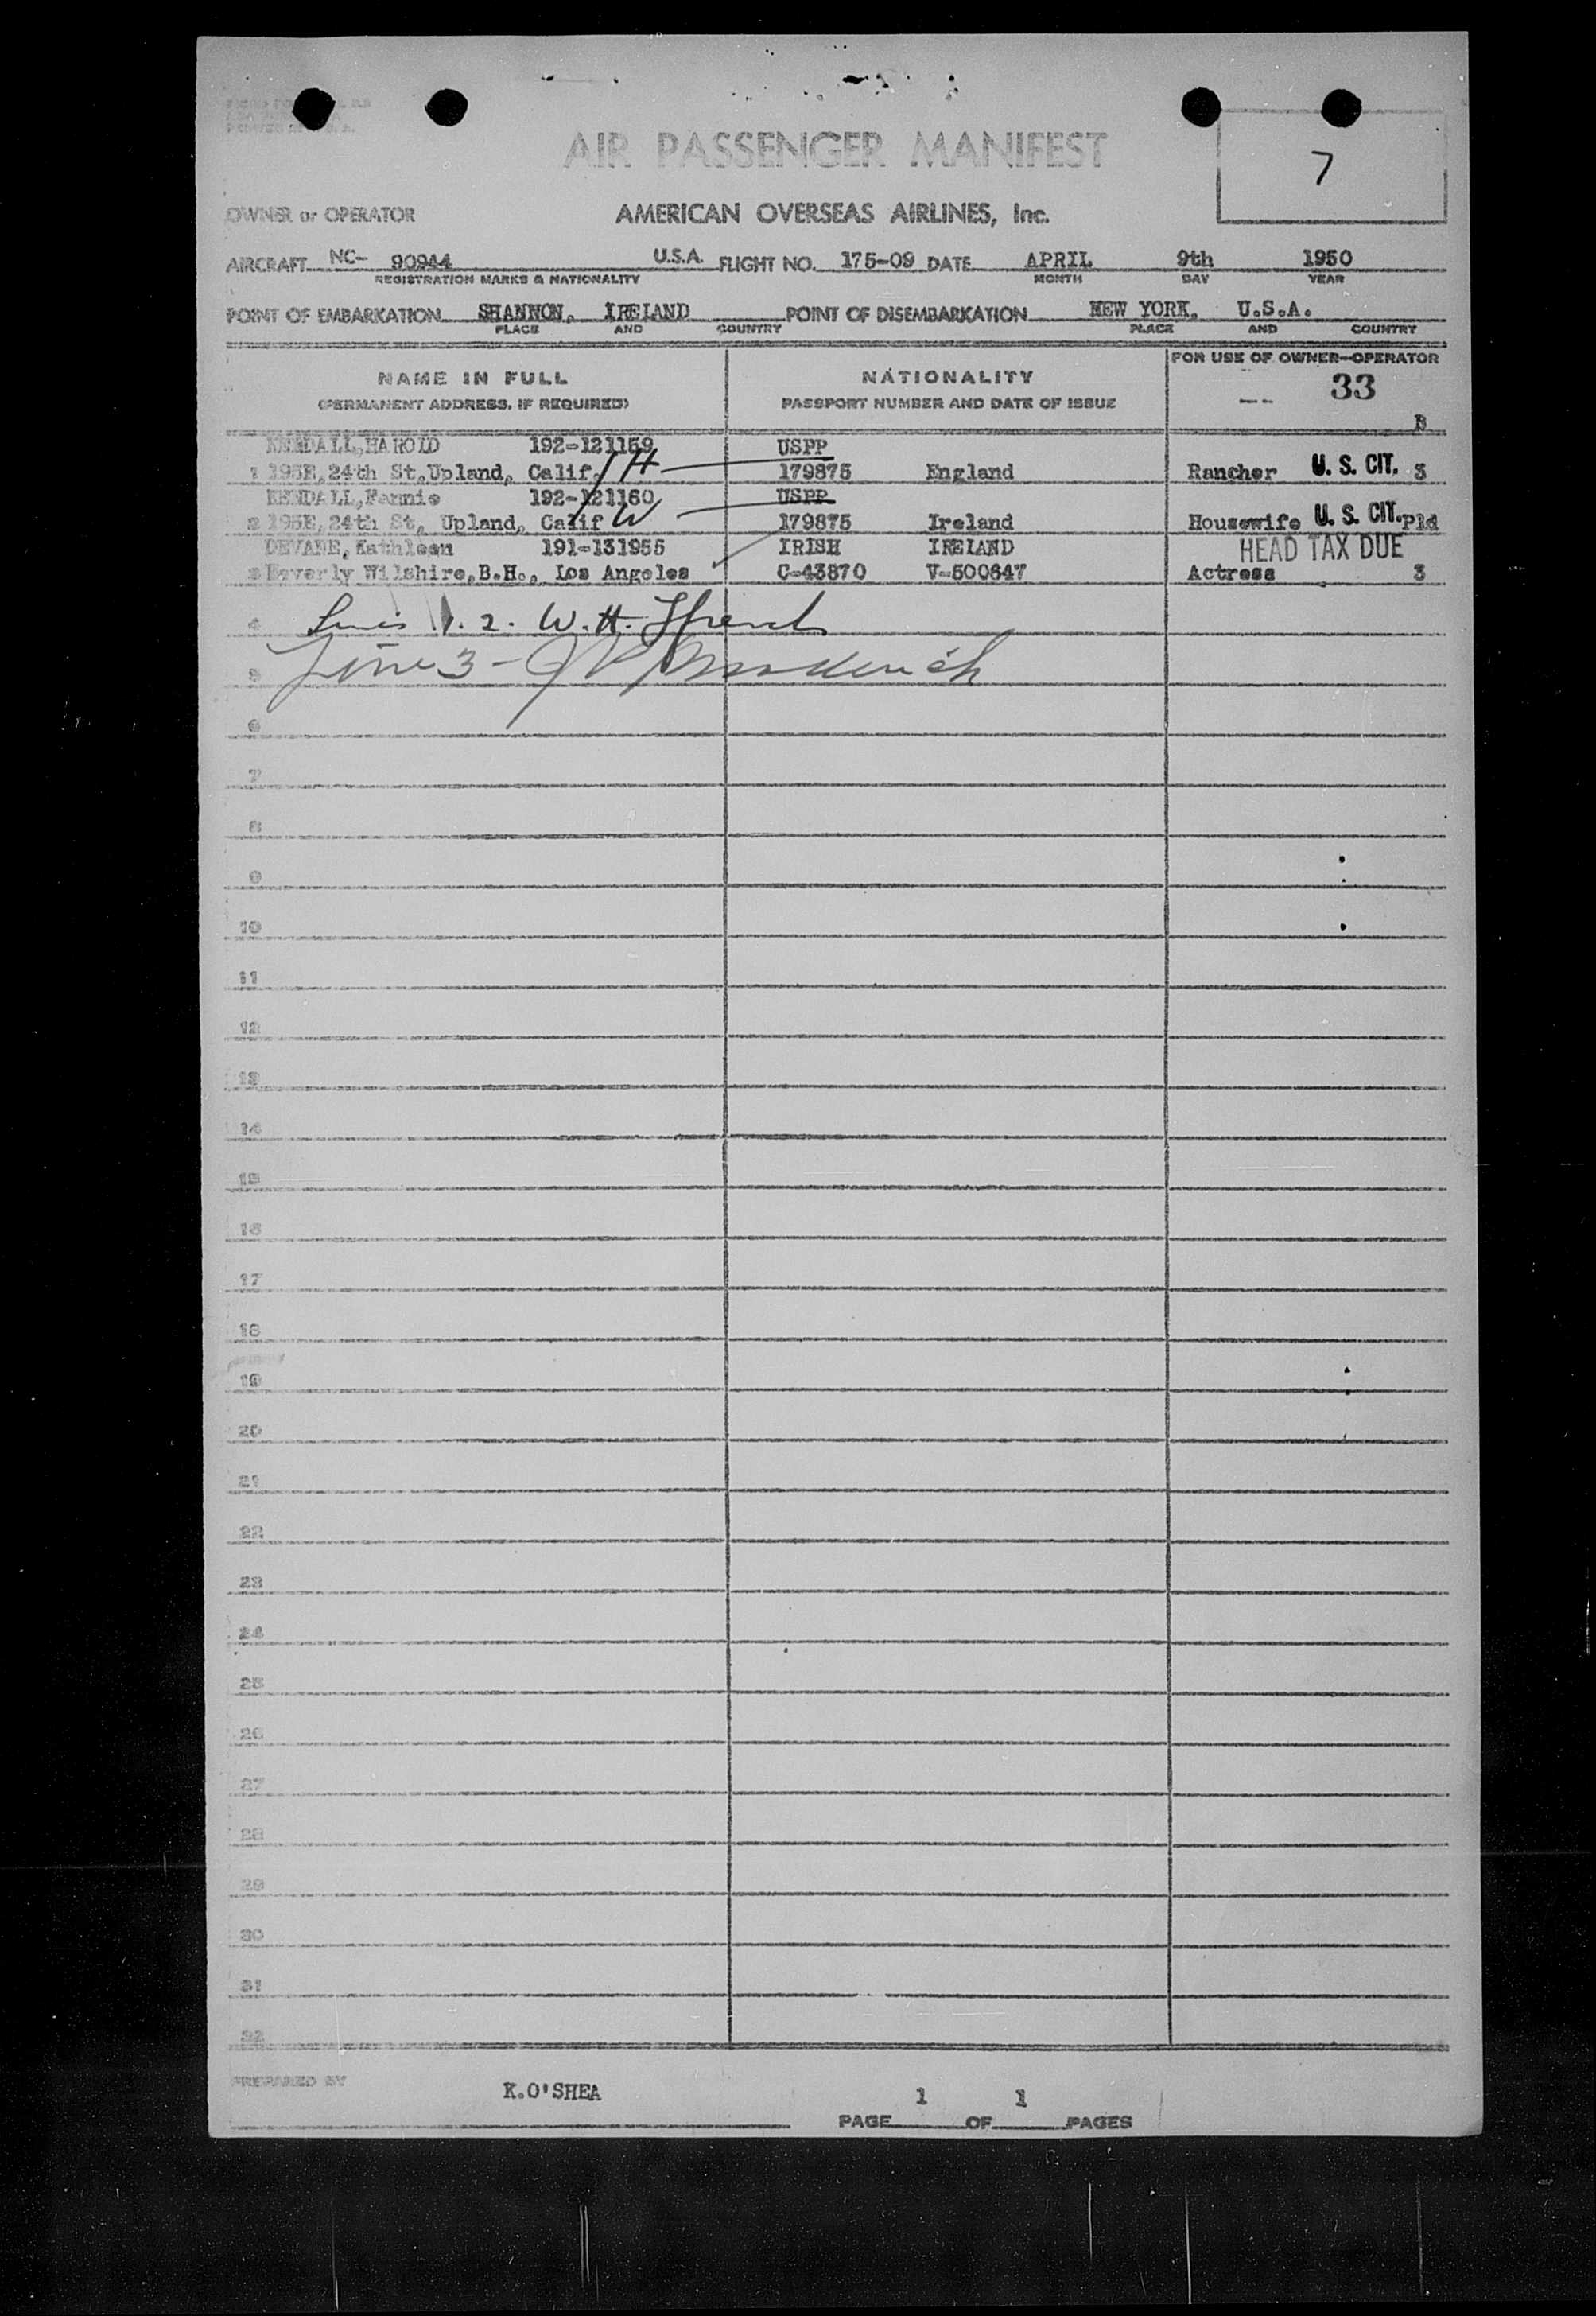 7
AIR PASSENGER MANIFEST
OWNER or OPERATOR AMERICAN OVERSEAS AIRLINES, Inc.
AIRCRAFT NC- 90944 U.S.A. FLIGHT NO. 175-09 DATE APRIL 9th 1950
REGISTRATION MARKS & NATIONALITY MONTH DAY YEAR
POINT OF EMBARKATION SHANNON, IRELAND POINT OF DISEMBARKATION NEW YORK, U.S.A.
PLACE AND COUNTRY PLACE AND COUNTRY
NAME IN FULL NATIONALITY FOR USE OF OWNER-OPERATOR
(PERMANENT ADDRESS, IF REQUIRED) PASSPORT NUMBER AND DATE OF ISSUE 33
B
KENDALL, HAROLD 192-121159 USPP
1 195E, 24th St, Upland, Calif. H 179875 England Rancher U. S. CIT. 3
KENDALL, Fannie 192-121160 USPP
2 195E, 24th St, Upland, Calif W 179875 Ireland Housewife U. S. CIT. Pld
DEVANE, Kathleen 191-131955 IRISH IRELAND HEAD TAX DUE
3 Beverly Wilshire, B.H., Los Angeles C-43870 V-500647 Actress 3
4 1. 2. W. H.
5 Line 3 -
6
7
8
9
10
11
12
13
14
15
16
17
18
19
20
21
22
23
24
25
26
27
28
29
30
31
32
PREPARED BY K.O'SHEA
PAGE 1 OF 1 PAGES